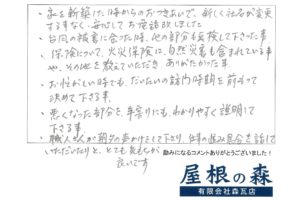 ・家を新築した時からのおつきあいで、新しく社名が変更
する事なく安心してお電話致しました
・台風の被害に合った時、他の部分も点検して下さった事
・保険について、火災保険に、自然災害も含まれている事
や、その他を教えていただき、ありがたかった事
・お忙しい時でも、だいたいの訪問時期を前もって
決めて下さる事
・悪くなった部分を、手寄りにも、わかりやすく説明して
下さる事
・職人さんが朝夕の声かけをして下さり、仕事の進み具合を話して
いただいたりと、とても気もちが
良いです
励みになるコメントありがとうございました!
屋根の森
有限会社森瓦店